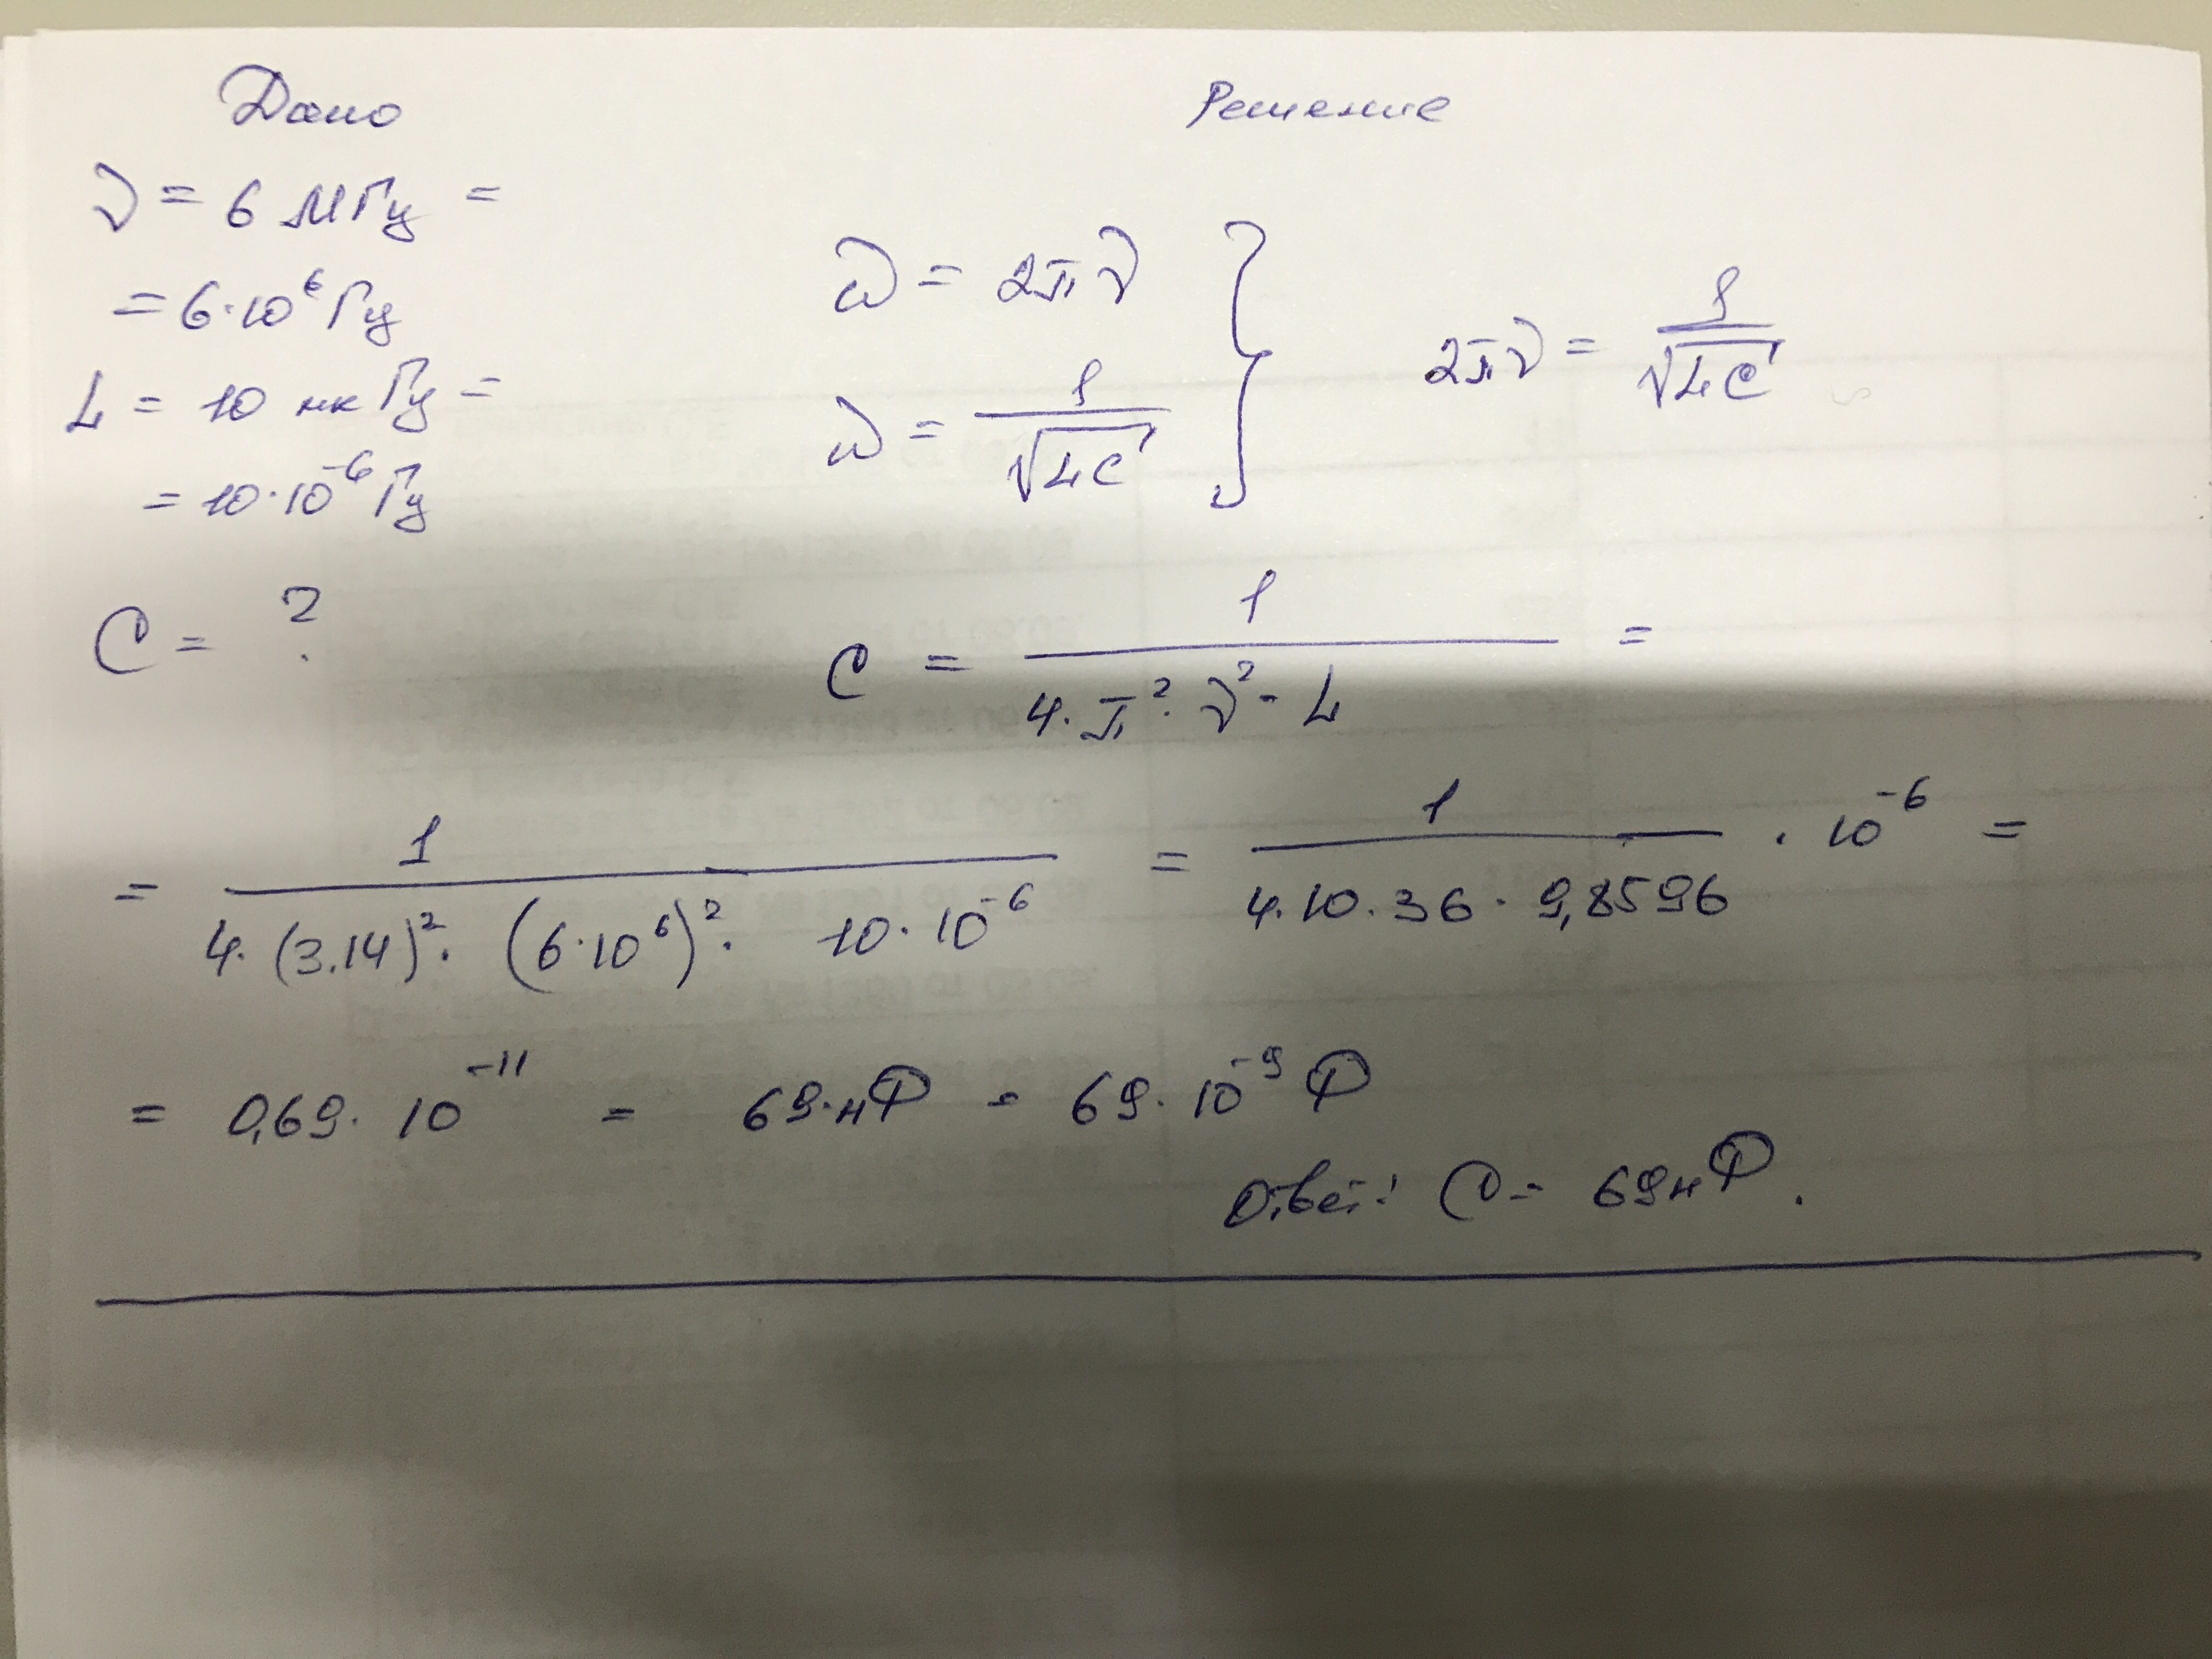 Дано
Решение
ν = 6 МГц =
= 6·10⁶ Гц
L = 10 мкГц =
= 10·10⁻⁶ Гц
C = ?
ω = 2πν
ω = 1/√(LC)
} 2πν = 1/√(LC)
C = 1/(4·π²·ν²·L) =
= 1/(4·(3.14)²·(6·10⁶)²·10·10⁻⁶) = 1/(4·10·36·9,8596) · 10⁻⁶ =
= 0,69·10⁻¹¹ = 69·нФ = 69·10⁻⁹ Ф
Ответ: C = 69нФ.